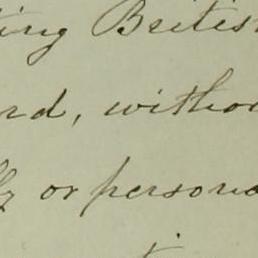 ting British
rd, witho
ly or persona